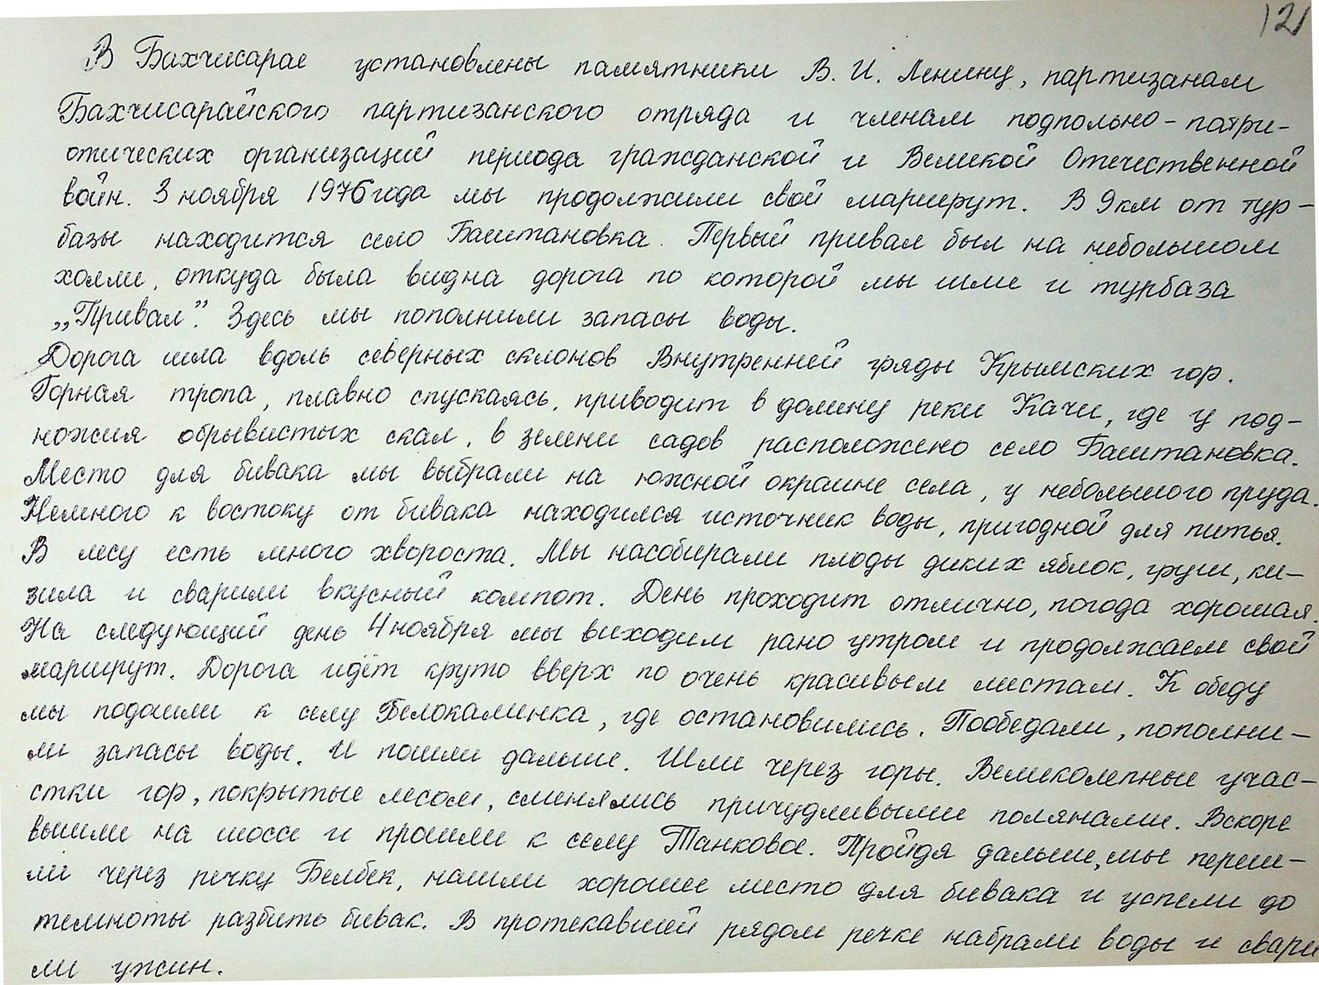 12
В Бахчисарае установлены памятники В. И. Ленину, партизанам
Бахчисарайского партизанского отряда и членам подпольно-патри-
отических организаций периода гражданской и Великой Отечественной
войн. 3 ноября 1976 года мы продолжили свой маршрут. В 9 км от тур-
базы находится село Баштановка. Первый привал был на небольшом
холме, откуда была видна дорога по которой мы шли и турбаза
„Привал”. Здесь мы пополнили запасы воды.
Дорога шла вдоль северных склонов Внутренней гряды Крымских гор.
Горная тропа, плавно спускаясь, приводит в долину реки Качи, где у под-
ножия обрывистых скал, в зелени садов расположено село Баштановка.
Место для бивака мы выбрали на южной окраине села, у небольшого пруда.
Немного к востоку от бивака находился источник воды, пригодной для питья.
В лесу есть много хвороста. Мы насобирали плоды диких яблок, груш, ки-
зила и сварили вкусный компот. День проходит отлично, погода хорошая.
На следующий день 4 ноября мы выходим рано утром и продолжаем свой
маршрут. Дорога идёт круто вверх по очень красивым местам. К обеду
мы подошли к селу Белокаменка, где остановились. Пообедали, пополни-
ли запасы воды. И пошли дальше. Шли через горы. Великолепные учас-
стки гор, покрытые лесом, сменялись причудливыми полянами. Вскоре
вышли на шоссе и прошли к селу Танковое. Пройдя дальше, мы переш-
ли через речку Бельбек, нашли хорошее место для бивака и успели до
темноты разбить бивак. В протекавшей рядом речке набрали воды и свари
ли ужин.